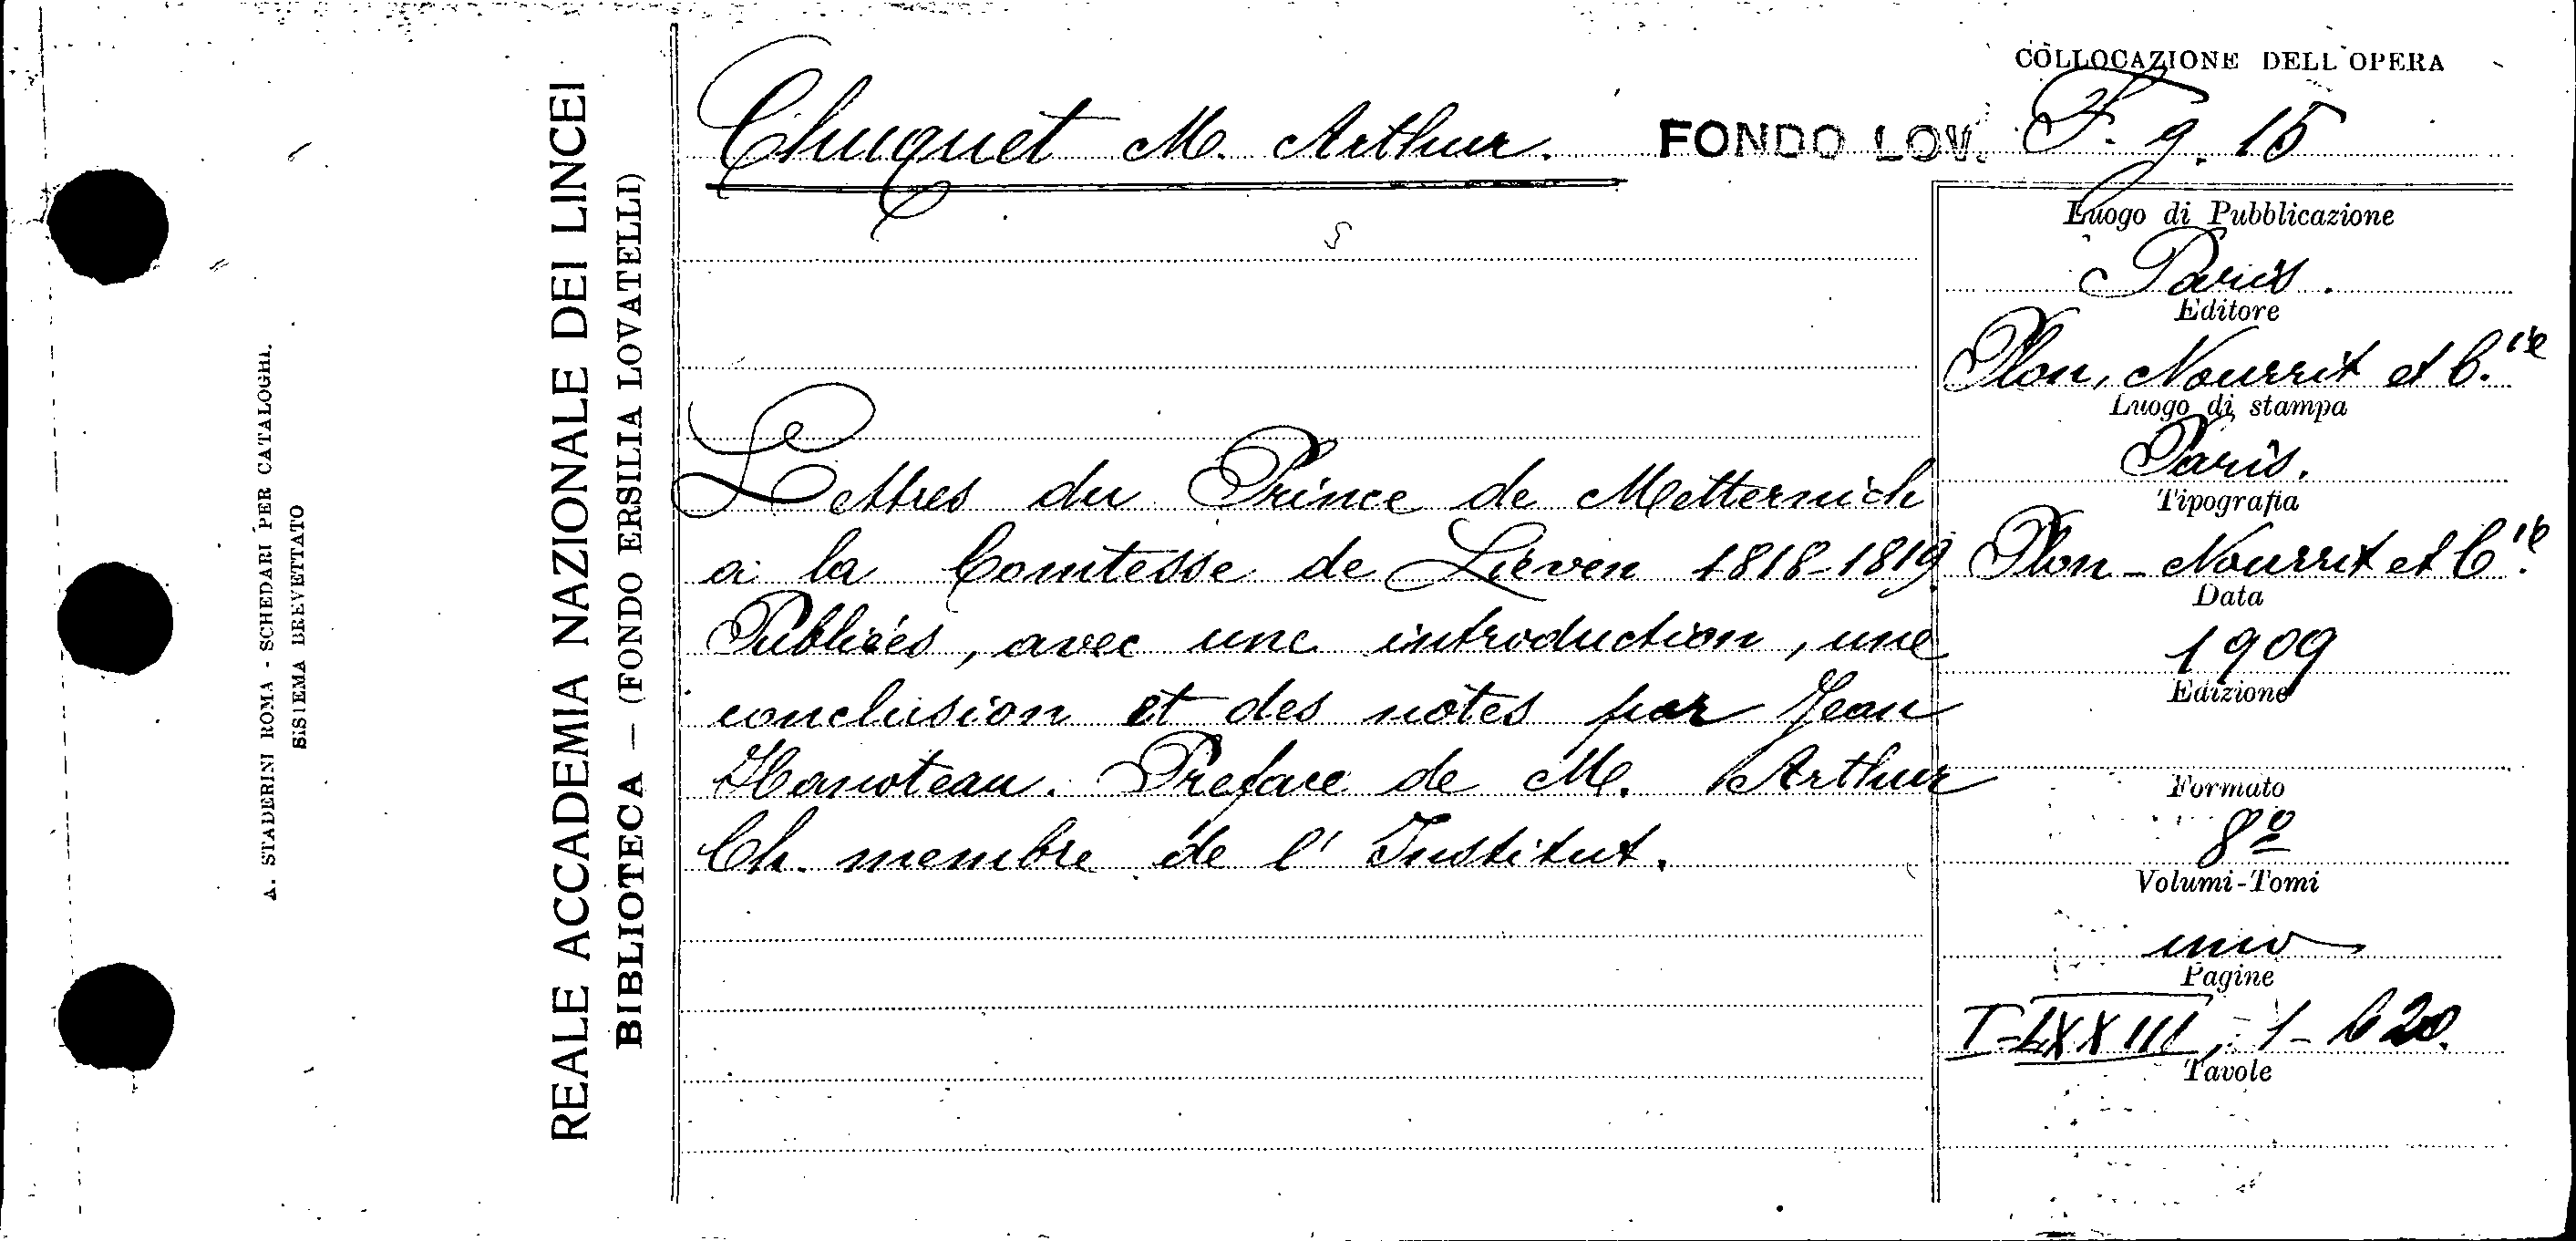 A. STADERINI ROMA - SCHEDARI PER CATALOGHI.
SISTEMA BREVETTATO
REALE ACCADEMIA NAZIONALE DEI LINCEI
BIBLIOTECA — (FONDO ERSILIA LOVATELLI)
COLLOCAZIONE DELL'OPERA
Chuquet M. Arthur. FONDO LOV. F. g. 15
Lettres du Prince de Metternich
a la Comtesse de Lieven 1818-1819.
Publiées, avec une introduction, une
conclusion et des notes par Jean
Hanoteau. Preface de M. Arthur
Ch. membre de l'Institut.
Luogo di Pubblicazione
Paris.
Editore
Plon, Nourrit et C.ie
Luogo di stampa
Paris.
Tipografia
Plon-Nourrit et Cie.
Data
1909
Edizione
Formato
8º
Volumi-Tomi
uno
Pagine
I-LXXIII, 1-620.
Tavole